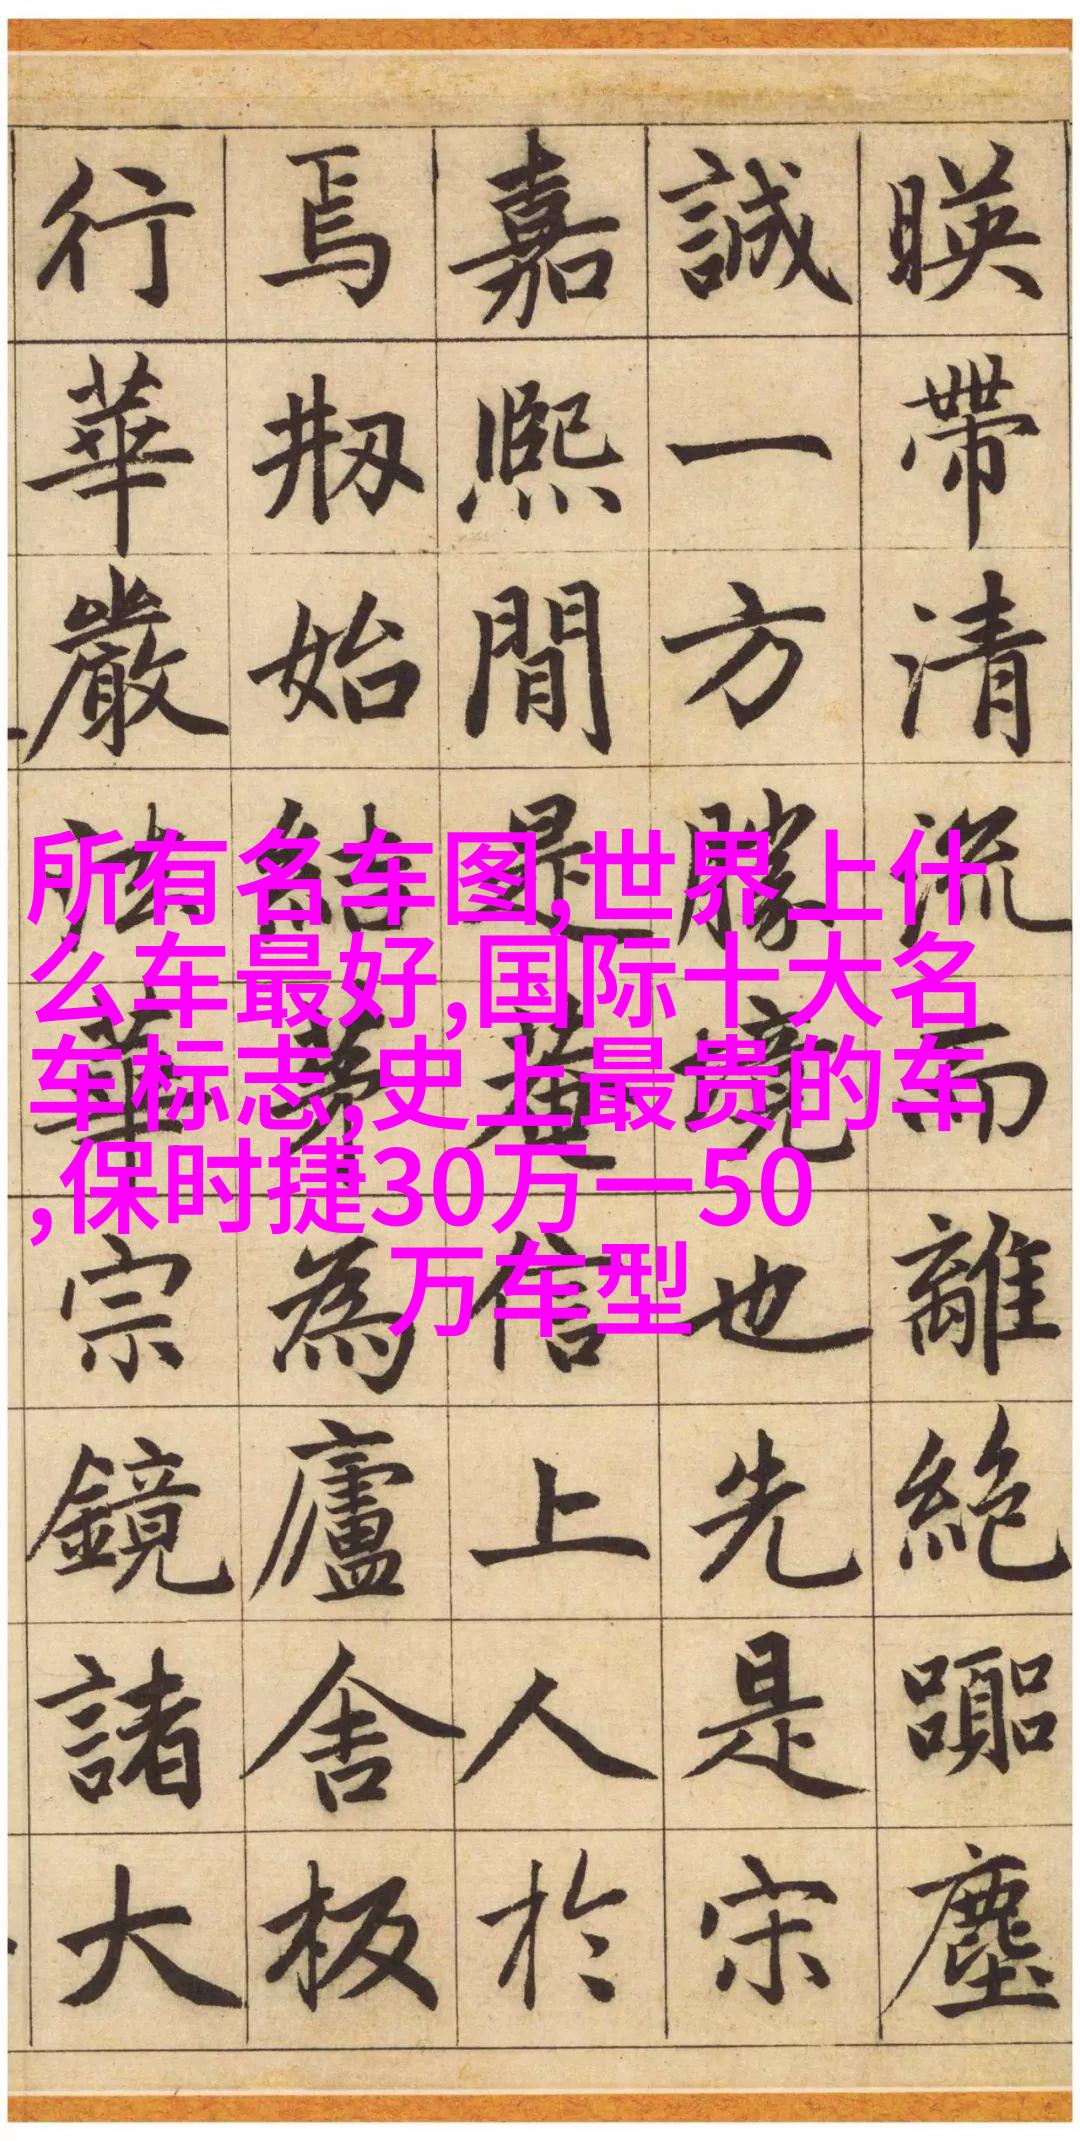 暎帶清流而離絶嚻塵
誠一方勝境也先是宋
嘉熙間是菴信上人於
焉剏始結茅為廬舍板
行華嚴法華宗鏡諸大
所有名车图,世界上什
么车最好,国际十大名
车标志,史上最贵的车
,保时捷30万一50
万车型